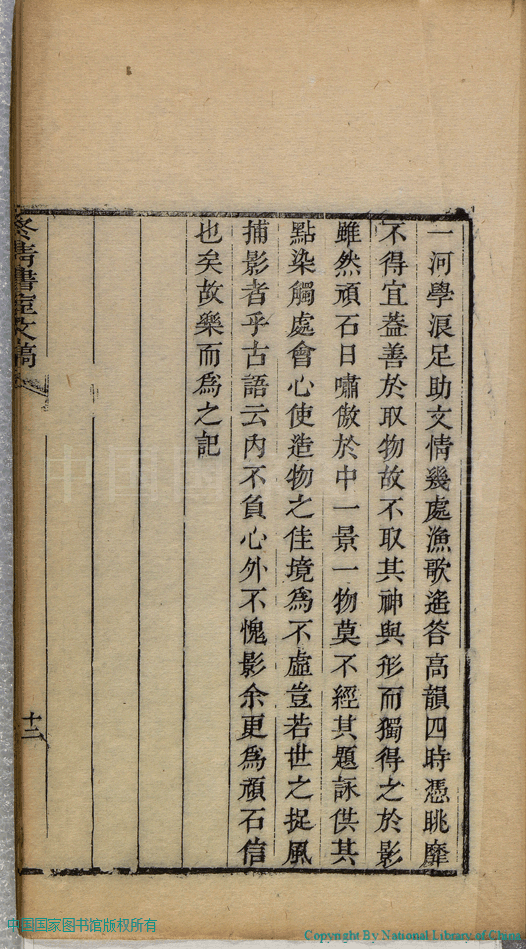 一河學浪足助文情幾處漁歌遙答高韻四時憑眺靡
不得宜葢善於取物故不取其神與形而獨得之於影
雖然頑石日嘯傲於中一景一物莫不經其題詠供其
點染觸處會心使造物之佳境為不虛豈若世之捉風
捕影者乎古語云內不負心外不愧影余更為頑石信
也矣故樂而為之記
書室文稿
十二
中国国家图书馆版权所有
Copyright By National Library of China